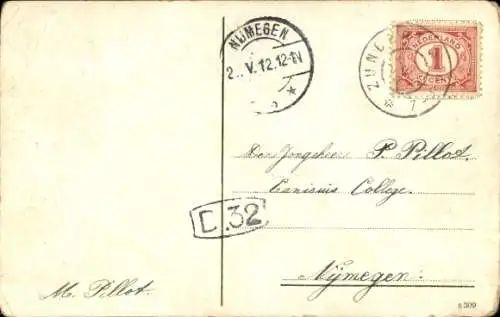 NIJMEGEN
2..V.12.12-1V
ZUND
NEDERLAND
1
CENT
Den Jongeheer P. Pillot.
Canisius College.
D.32
Nijmegen.
M. Pillot.
s 309